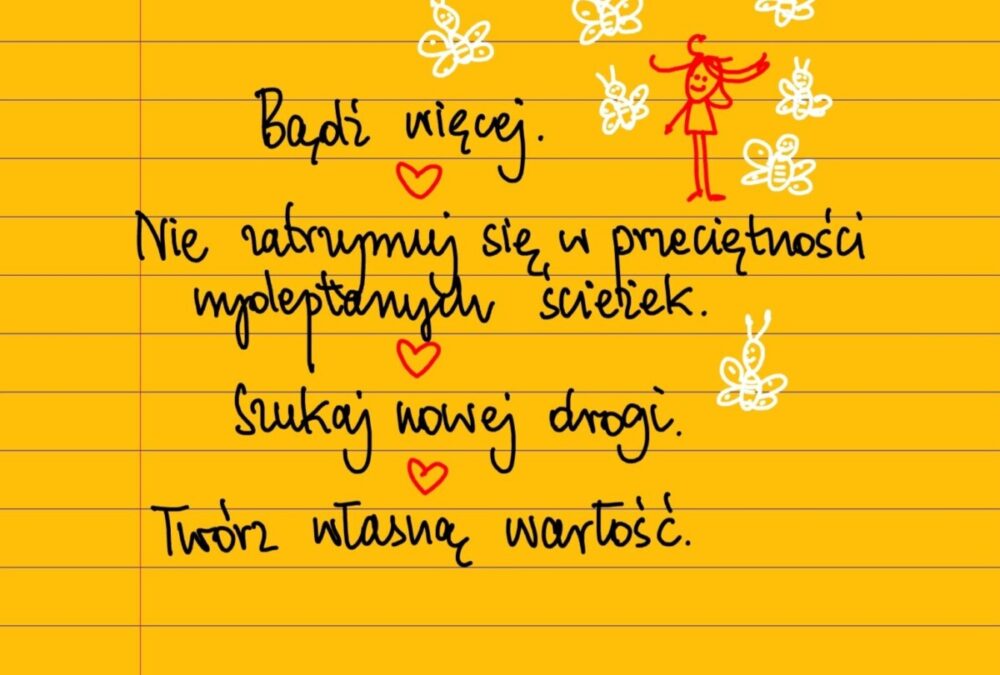 Bądź więcej.
Nie zatrzymuj się w przeciętności
wydeptanych ścieżek.
Szukaj nowej drogi.
Twórz własną wartość.